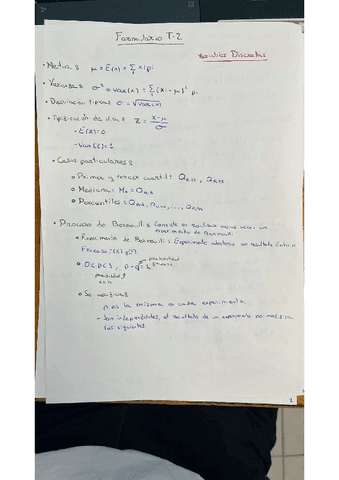 Formulario T-2
Variables Discretas
• Media: μ = E(x) = Σ xi pi
• Varianza: σ² = var(x) = Σ (xi - μ)² pi
• Desviación típica: σ = √var(x)
• Tipificación de la v.a.: Z = x-μ / σ
- E(Z)=0
- Var(Z)=1
• Casos particulares:
• Primer y tercer cuartil: Q0,25, Q0,75
• Mediana: Me = Q0,5
• Percentiles: Q0,01, ..., Q0,99
• Proceso de Bernoulli: Consiste en realizar varias veces un
experimento de Bernoulli.
• Experimento de Bernoulli: Experimento aleatorio con resultado Éxito o
Fracaso
• 0≤p≤1,
probabilidad
fracaso
probabilidad
éxito
• Se verifica:
p es la misma en cada experimento.
- Son independientes, el resultado de un experimento no modifica
los siguientes.